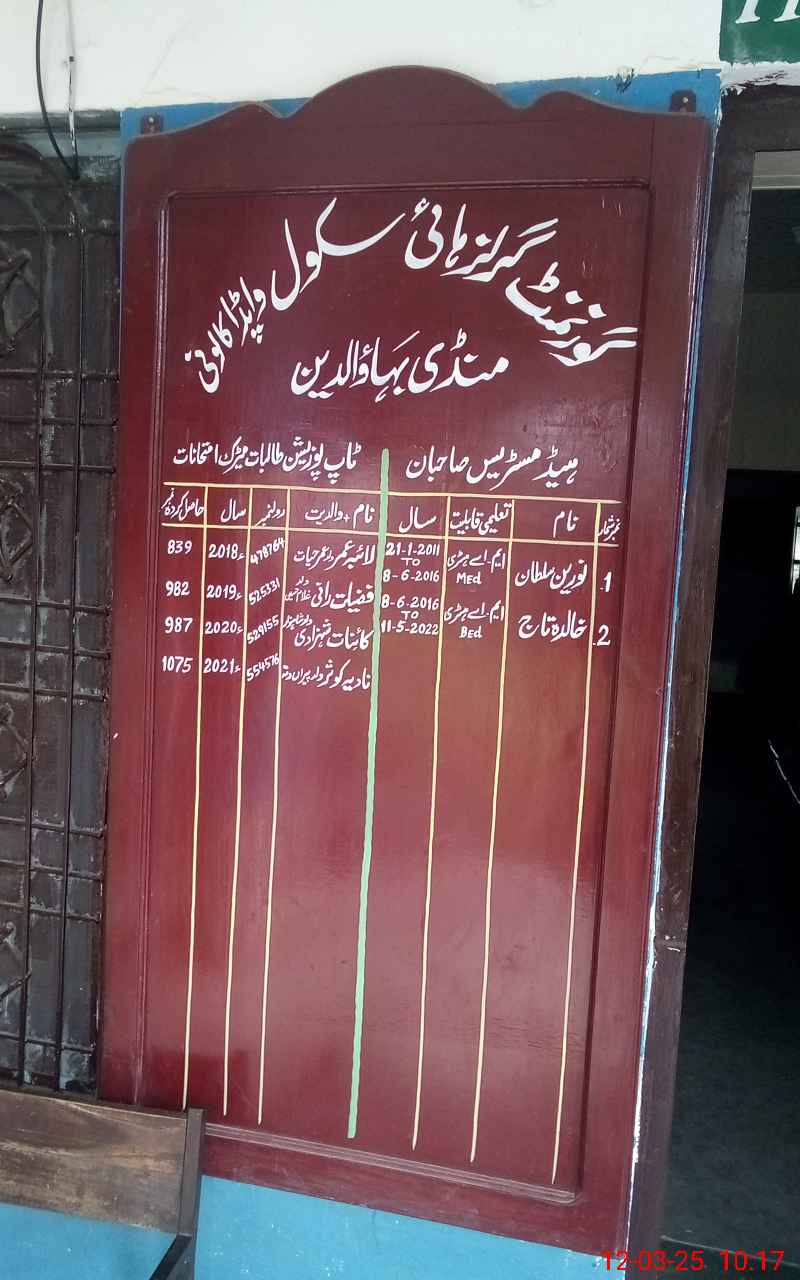 گورنمنٹ گرلز ہائی سکول واپڈا کالونی
منڈی بہاؤالدین
ہیڈ مسٹریس صاحبان
نمبرشمار نام تعلیمی قابلیت سال
1. نورین سلطان ایم۔اے ہسٹری MEd 21-1-2011 TO 8-6-2016
2. خالدہ تاج ایم۔اے ہسٹری BEd 8-6-2016 TO 11-5-2022
ٹاپ پوزیشن طالبات میٹرک امتحانات
نام + ولدیت رولنمبر سال حاصل کردہ نمبر
لائبہ عمر ولد عمر حیات 478764 2018ء 839
فضیلت رانی ولد غلام حسین 525331 2019ء 982
کائنات شہزادی ولد 529155 2020ء 987
نادیہ کوثر ولد پیراں دتہ 554576 2021ء 1075
12-03-25 10:17